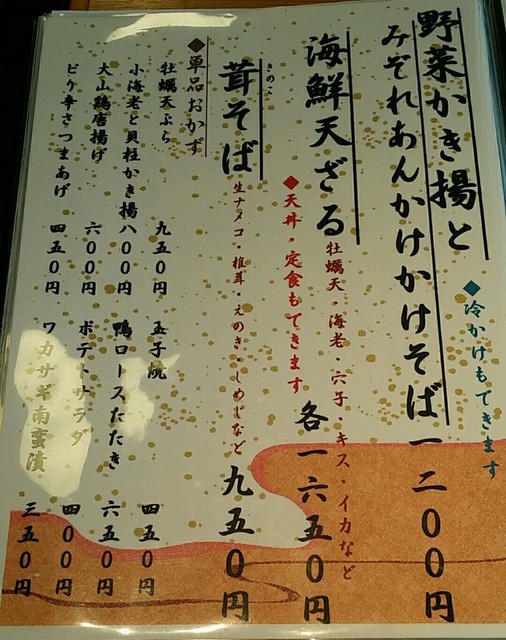 野菜かき揚と
みぞれあんかけかけそば 一二〇〇円
◆冷かけもできます
海鮮天ざる
牡蠣天・海老・穴子・キス・イカなど
◆天丼・定食もできます
各一六五〇円
きのこ
茸そば
生ナメコ・椎茸・えのき・しめじなど
九五〇円
◆単品おかず
牡蠣天ぷら 九五〇円
小海老と貝柱かき揚 八〇〇円
大山鶏唐揚げ 六〇〇円
ピリ辛さつまあげ 四五〇円
玉子焼 四五〇円
鴨ロースたたき 六五〇円
ポテトサラダ 四〇〇円
ワカサギ南蛮漬 三五〇円